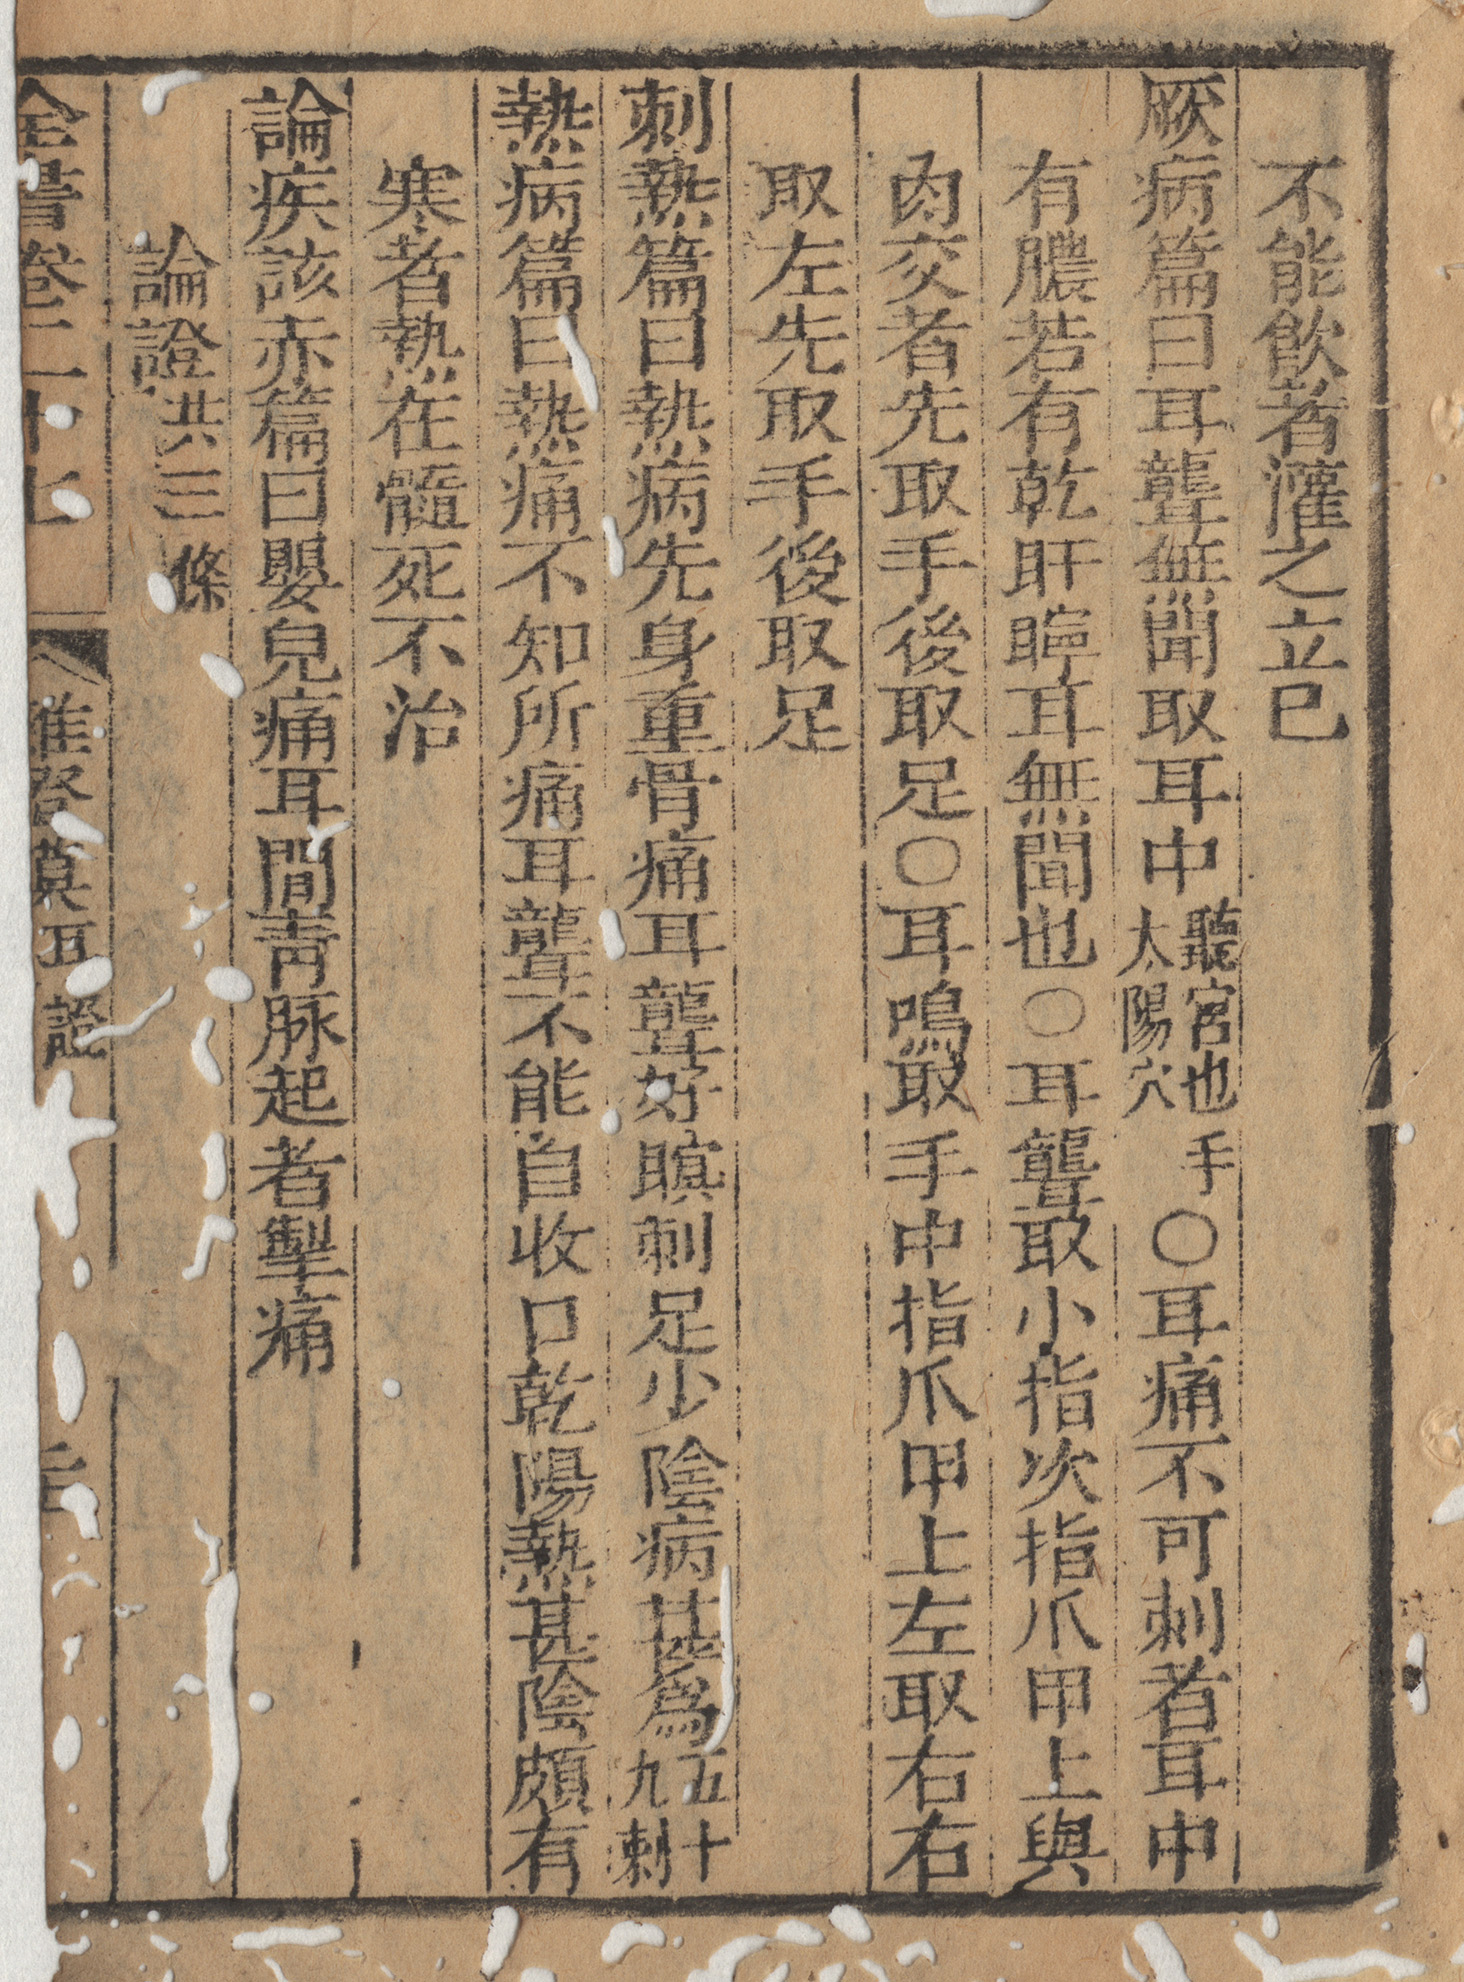 不能飲者灌之立已
厥病篇曰耳聾無聞取耳中聽宮也手太陽穴〇耳痛不可刺者耳中
有膿若有乾耵聹耳無聞也〇耳聾取小指次指爪甲上與
肉交者先取手後取足〇耳鳴取手中指爪甲上左取右右
取左先取手後取足
刺熱篇曰熱病先身重骨痛耳聾好瞑刺足少陰病甚為五十九刺
熱病篇曰熱病不知所痛耳聾不能自收口乾陽熱甚陰頗有
寒者熱在髓死不治
論疾該赤篇曰嬰兒痛耳間青脉起者掣痛
論證共三條
全書卷二十七 雜證謨 耳證